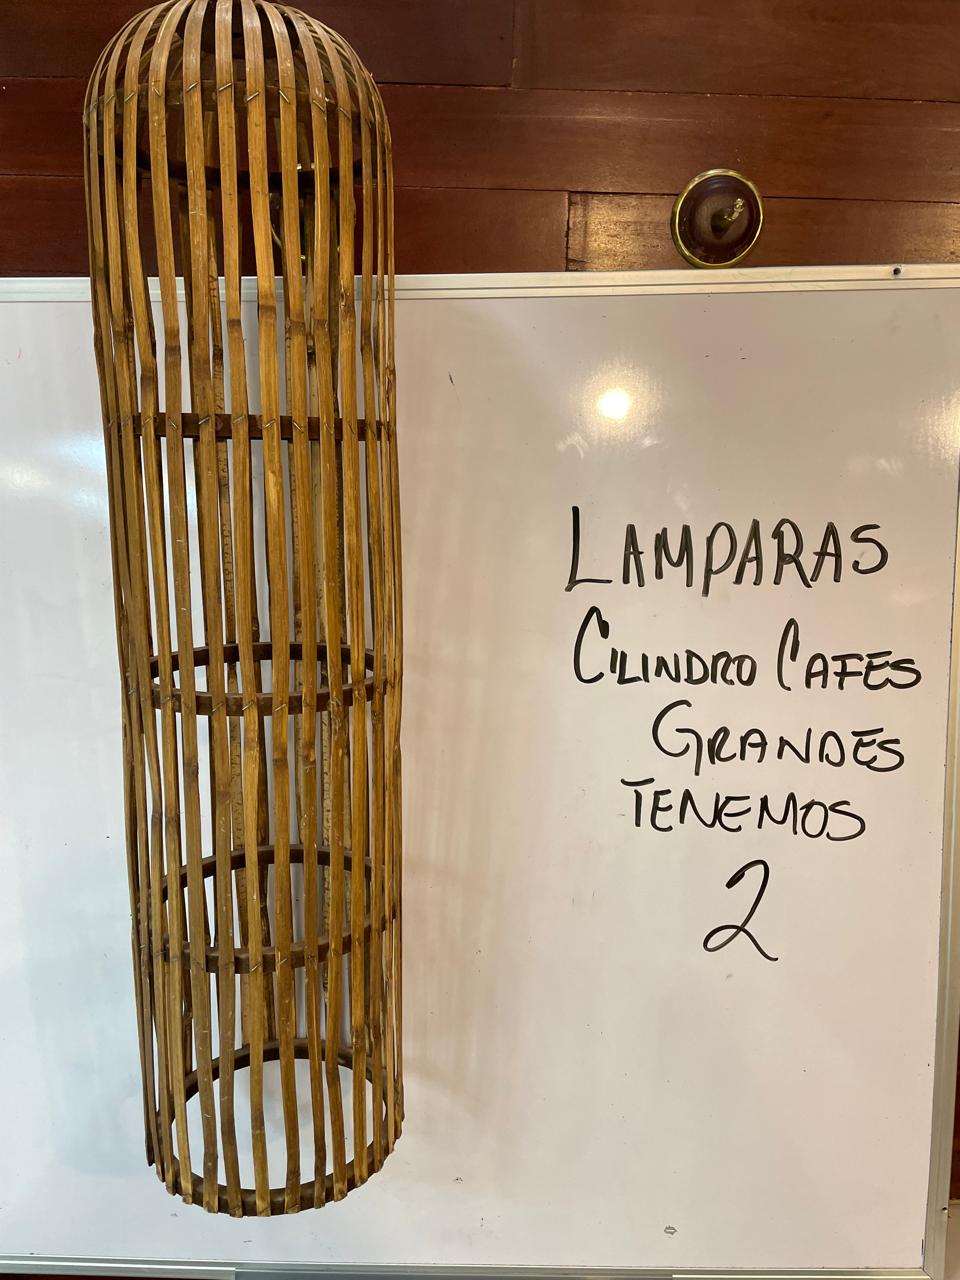 LAMPARAS
CILINDRO CAFES
GRANDES
TENEMOS
2